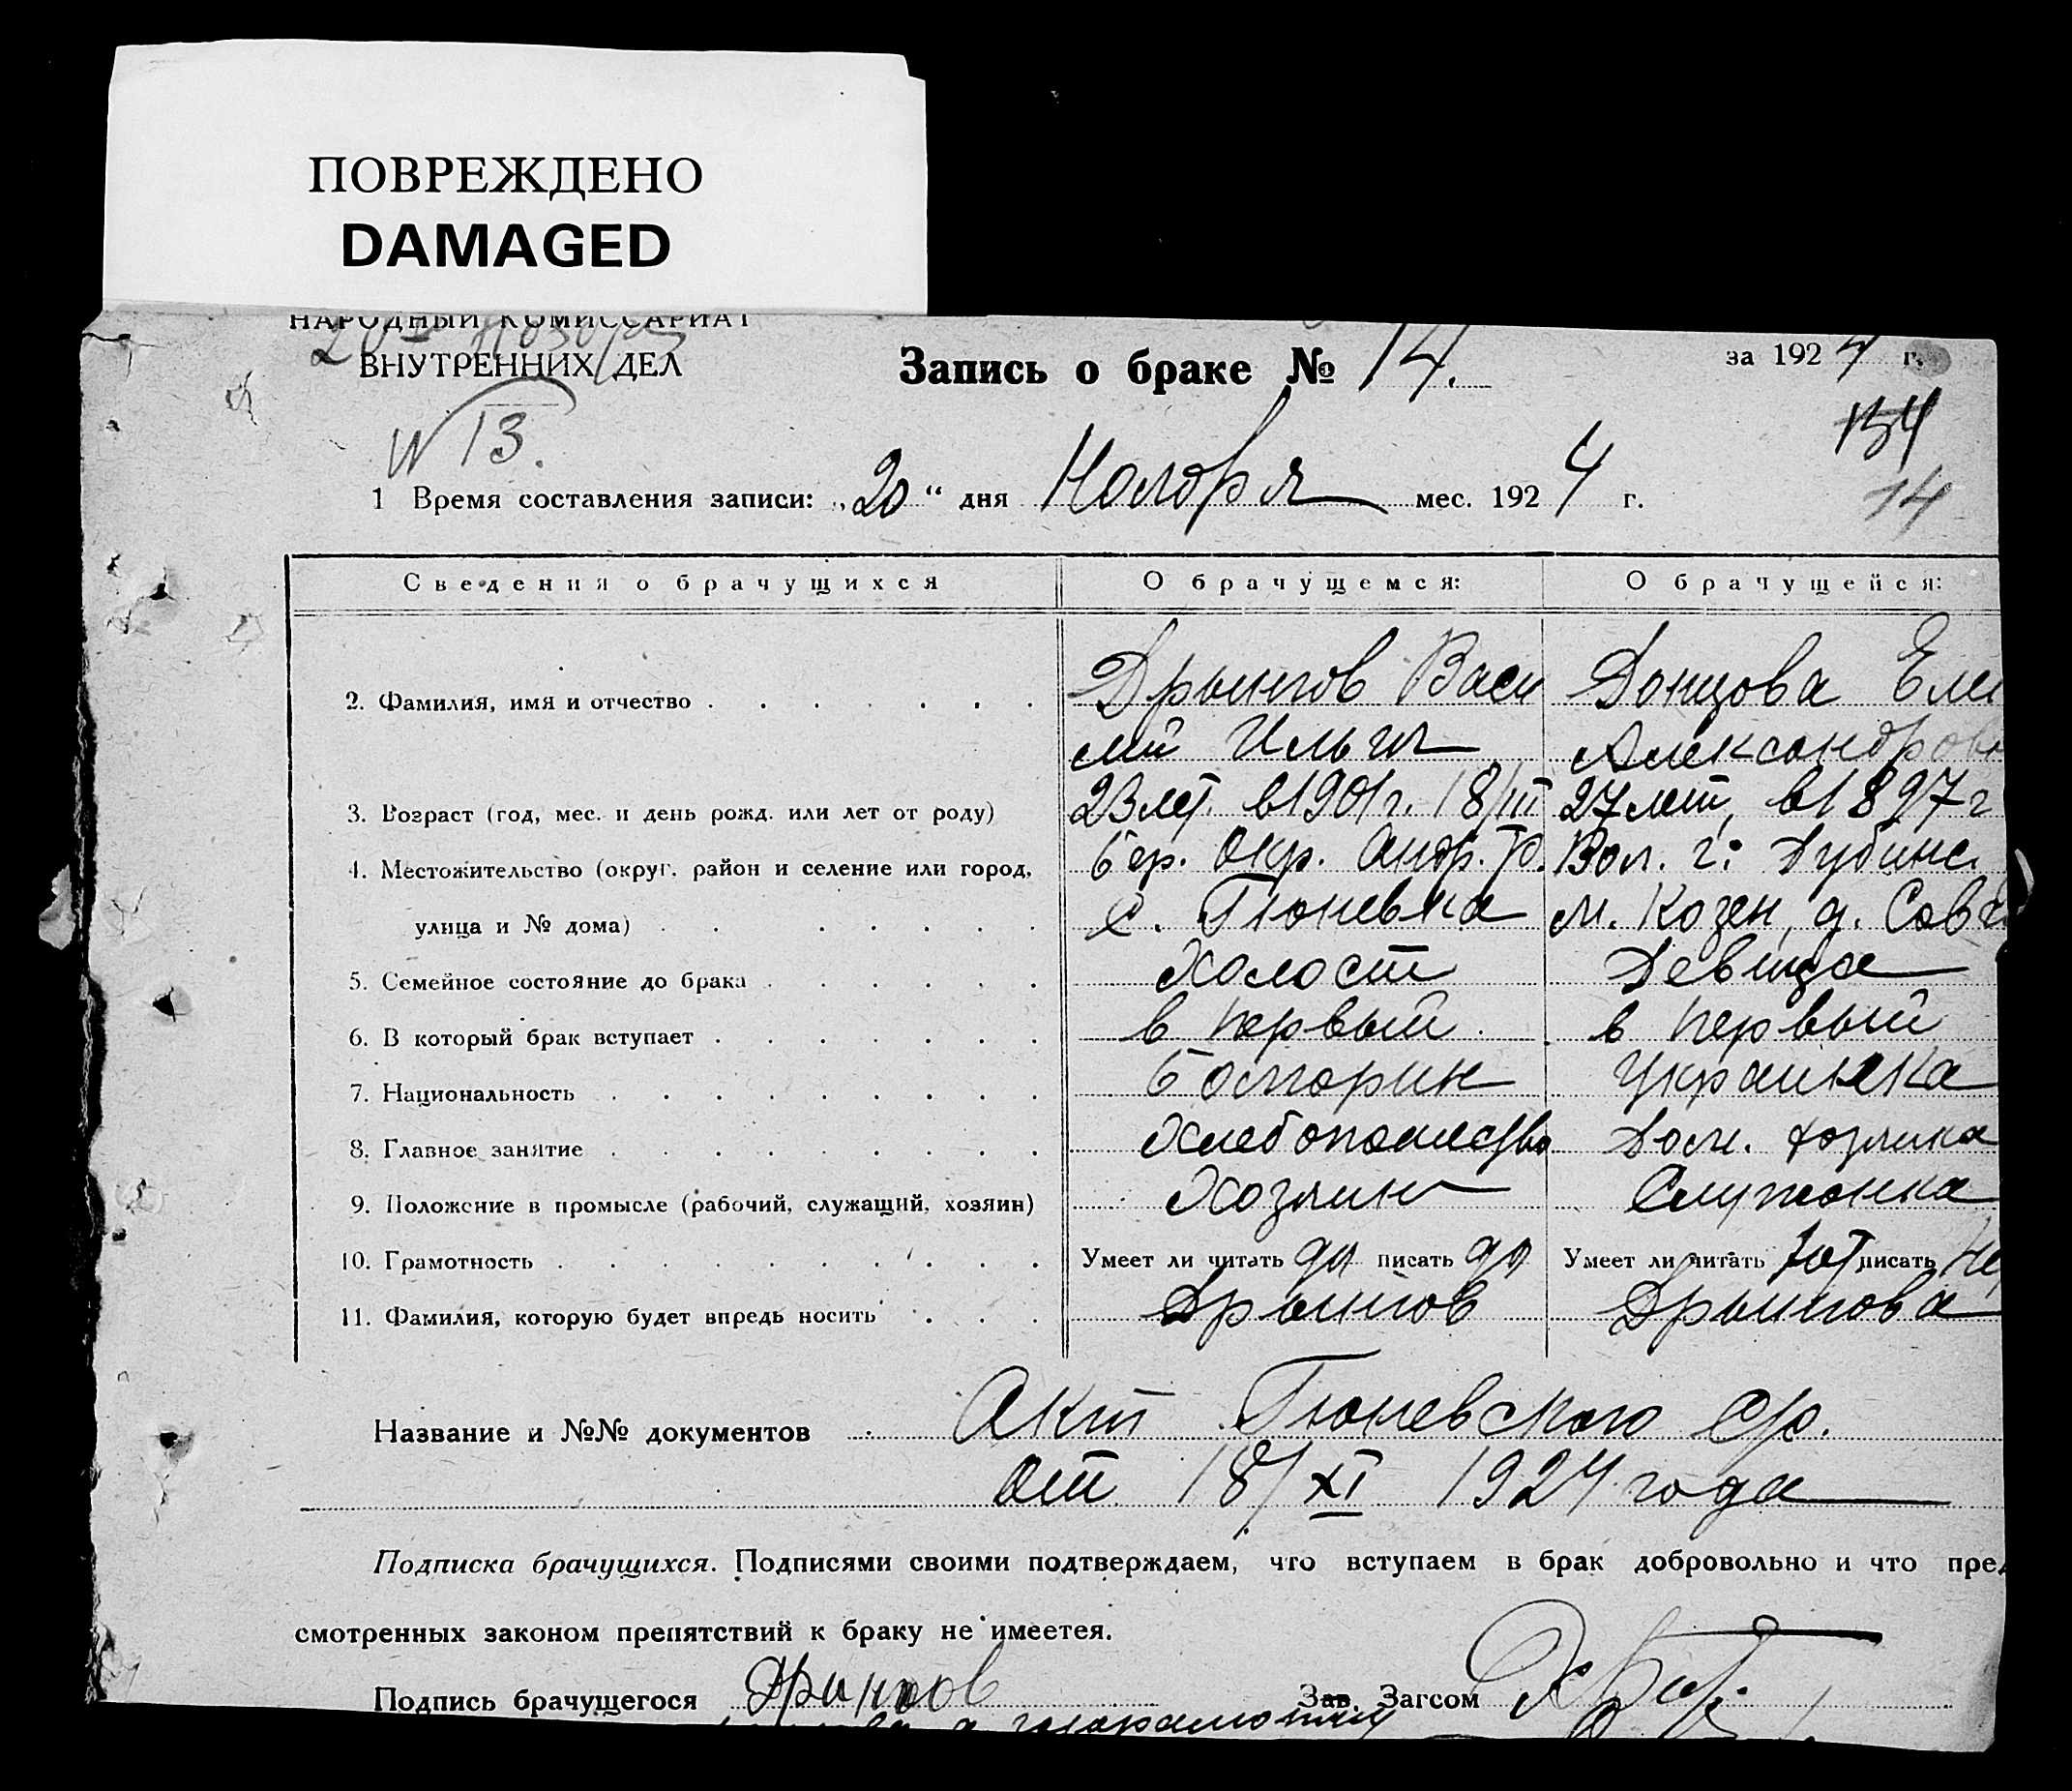 ПОВРЕЖДЕНО
DAMAGED
НАРОДНЫЙ КОМИССАРИАТ
ВНУТРЕННИХ ДЕЛ
Запись о браке № 14.
за 1924 г.
N 13.
134
14
1 Время составления записи: „20“ дня Ноября мес. 1924 г.
Сведения о брачущихся О брачущемся: О брачущейся:
2. Фамилия, имя и отчество Дрынгов Васи Донцова Еле
лий Ильич Александров
3. Возраст (год, мес. и день рожд. или лет от роду) 23 лет. в 1901 г. 18/III 27 лет, в 1897 г
4. Местожительство (округ, район и селение или город, Бер. Окр. Андр. Р. Вол. г. Дубинс.
улица и № дома) С. Гюневка м. Козен, д.
5. Семейное состояние до брака Холост Девица
6. В который брак вступает в первый в первый
7. Национальность Болгорин Украинка
8. Главное занятие Хлебопашество Дом. хозяика
9. Положение в промысле (рабочий, служащий, хозяин) Хозяин Служанка
10. Грамотность Умеет ли читать да писать да Умеет ли читать писать
11. Фамилия, которую будет впредь носить Дрынгов Дрынгова
Название и №№ документов Акт Гюневского С/с.
от 18/XI 1924 года
Подписка брачущихся. Подписями своими подтверждаем, что вступаем в брак добровольно и что пред
смотренных законом препятствий к браку не имеется.
Подпись брачущегося Дрынгов Зав. Загсом